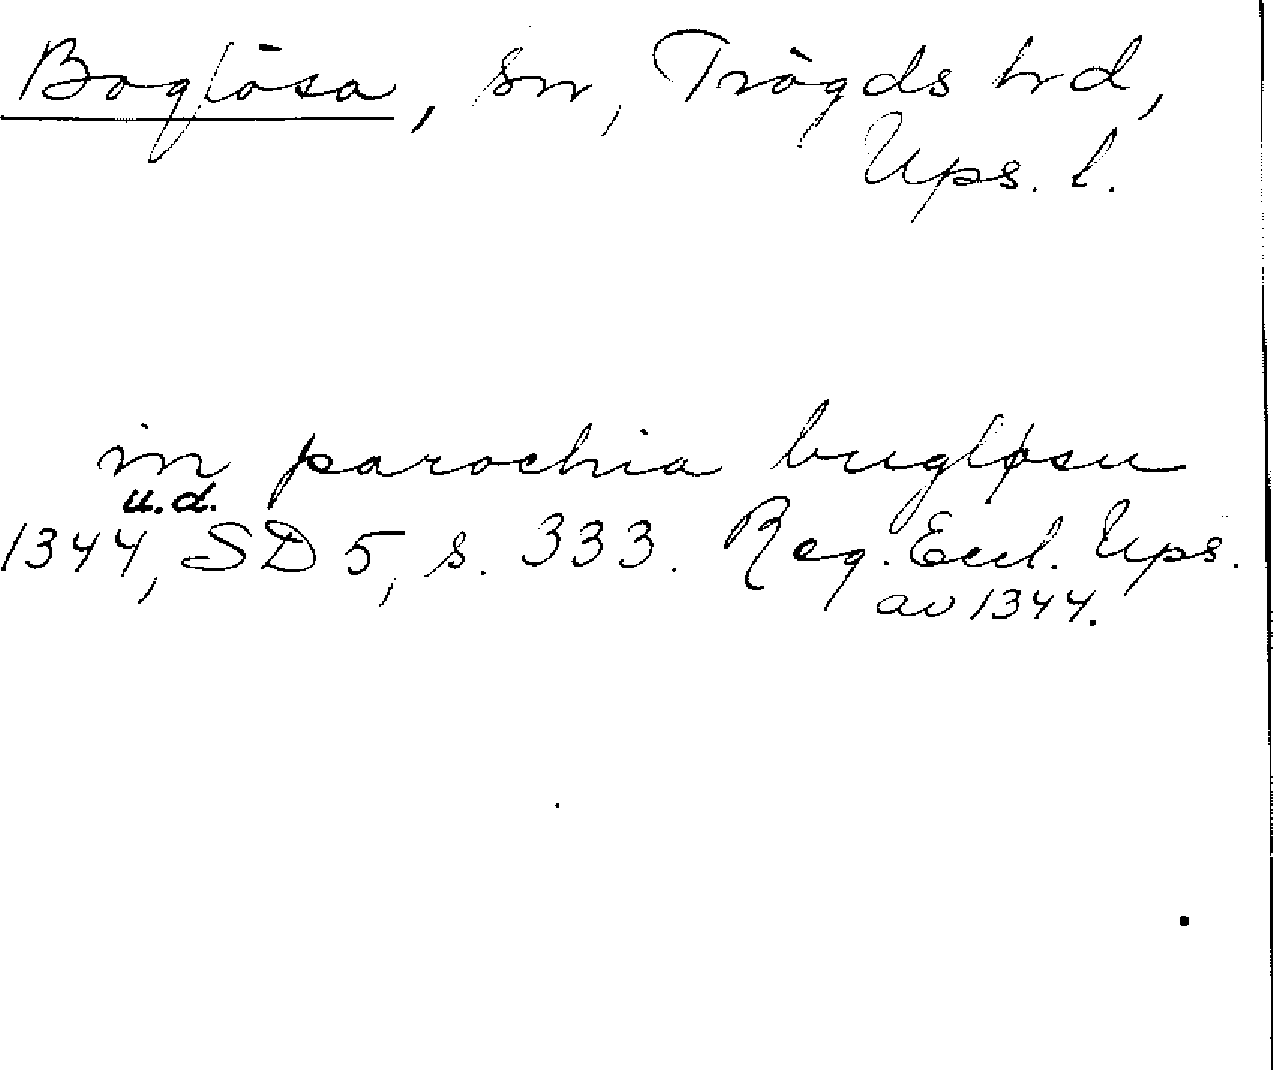 Boglösa, sn, Trögds hd,
Ups. l.
in parochia bugløsu
u.d.
1344, SD 5, s. 333. Reg. Eccl. Ups.
av 1344.